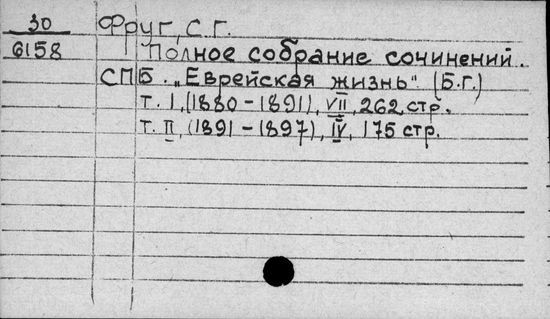 30 Фруг, С. Г.
6158 Полное собрание сочинений.
СПБ. „Еврейская жизнь" (Б.г.)
т. I, (1880 – 1891), VII, 262 стр.
т. II, (1891 – 1897), IV, 175 стр.